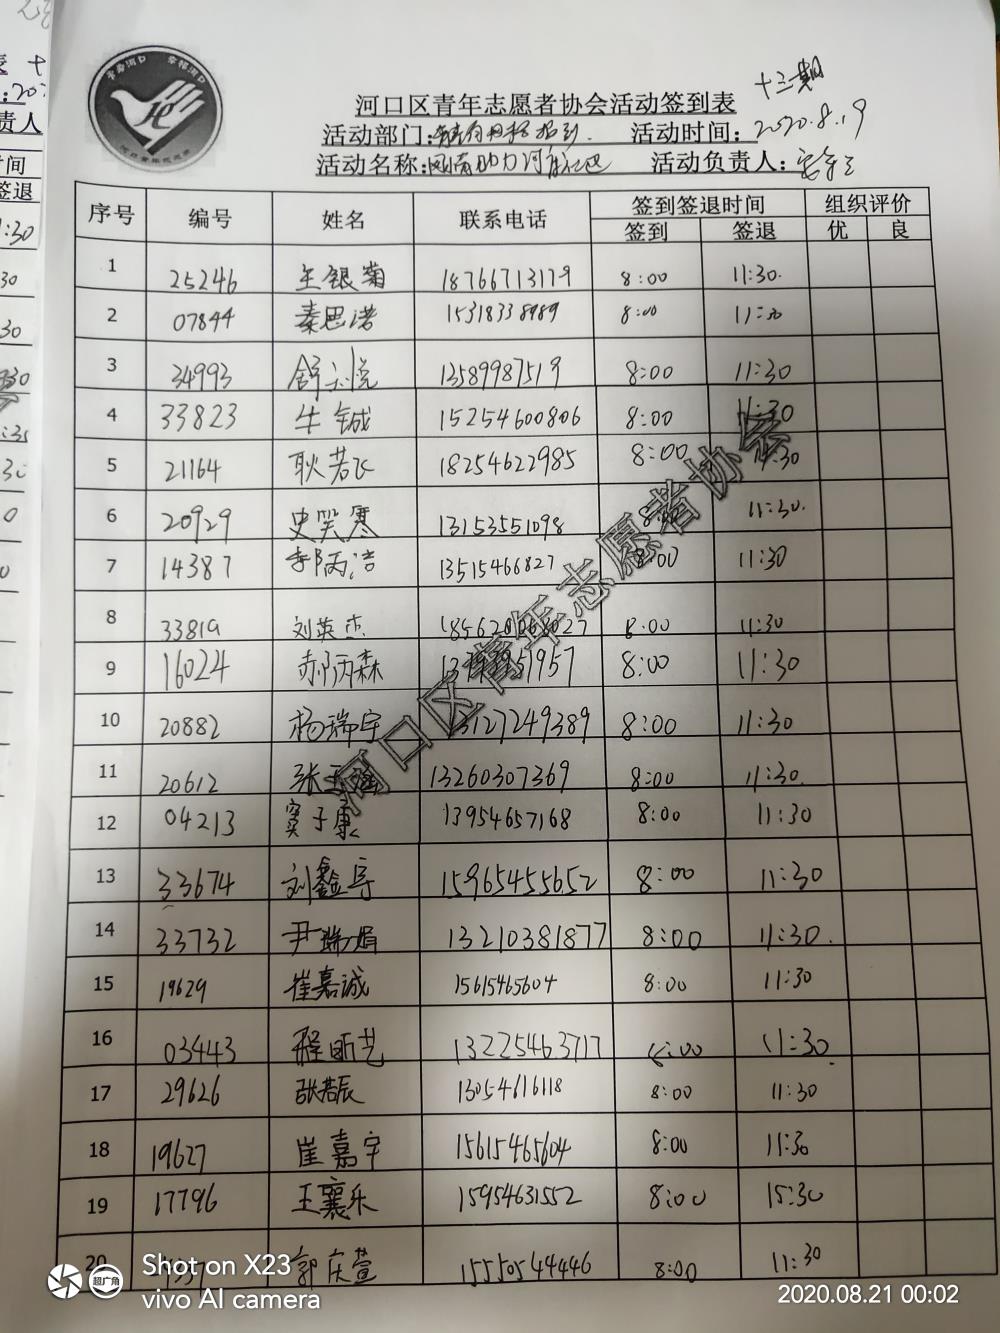 十三期
河口区青年志愿者协会活动签到表
活动部门: 活动时间: 2020.8.19
活动名称: 活动负责人:
序号 编号 姓名 联系电话 签到签退时间 组织评价
签到 签退 优 良
1 25246 王银菊 18766713179 8:00 11:30.
2 07844 秦思诺 15318338989 8:00 11:30
3 34993 舒 悦 13589987519 8:00 11:30
4 33823 牛铖 15254600806 8:00 11:30
5 21164 耿若飞 18254622985 8:00 11:30
6 20929 史笑寒 13153551098 11:30.
7 14387 李炳洁 13515466827 8:00 11:30
8 33819 刘英杰 8:00 11:30
9 16024 郝炳森 8:00 11:30
10 20882 杨瑞宇 13127249389 8:00 11:30
11 20612 张玉 13260307369 8:00 11:30.
12 04213 窦子康 13954657168 8:00 11:30
13 33674 刘鑫宇 15965455652 8:00 11:30
14 33732 尹瑞娟 13210381877 8:00 11:30.
15 19629 崔嘉诚 15615465604 8:00 11:30
16 03443 程昕艺 13225463717 8:00 11:30
17 29626 张若辰 13054616118 8:00 11:30
18 19627 崔嘉宇 15615465604 8:00 11:30
19 17796 王襄乐 15954631552 8:00 15:30
20 郭庆萱 15550544446 8:00 11:30
河口区青年志愿者协会
超广角
Shot on X23
vivo AI camera
2020.08.21 00:02